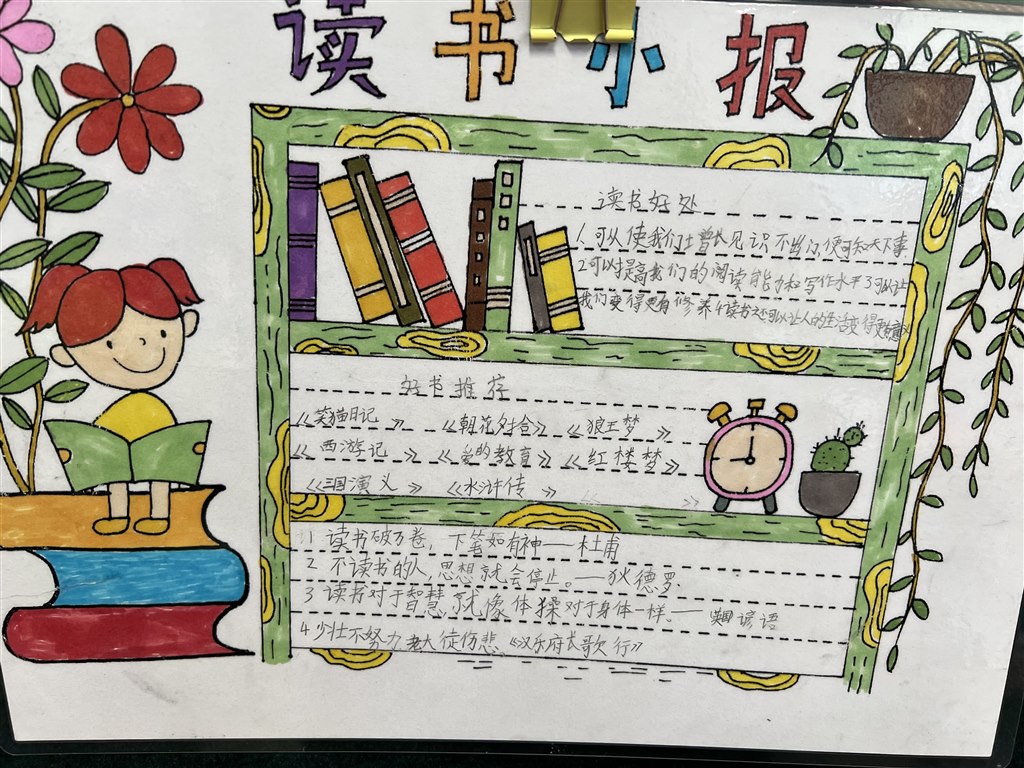 读书小报
读书好处
1.可以使我们增长见识不出门便可知天下事
2可以提高我们的阅读能力和写作水平3可以让
我们变得更有修养4读书还可以让人的生活变得更
好书推荐
《笑猫日记》 《朝花夕拾》 《狼王梦》
《西游记》 《爱的教育》 《红楼梦》
《三国演义》 《水浒传》 《 》
1 读书破万卷，下笔如有神——杜甫
2 不读书的人，思想就会停止。——狄德罗
3 读书对于智慧，就像体操对于身体一样。——英国谚语
4 少壮不努力，老大徒伤悲《汉乐府长歌行》